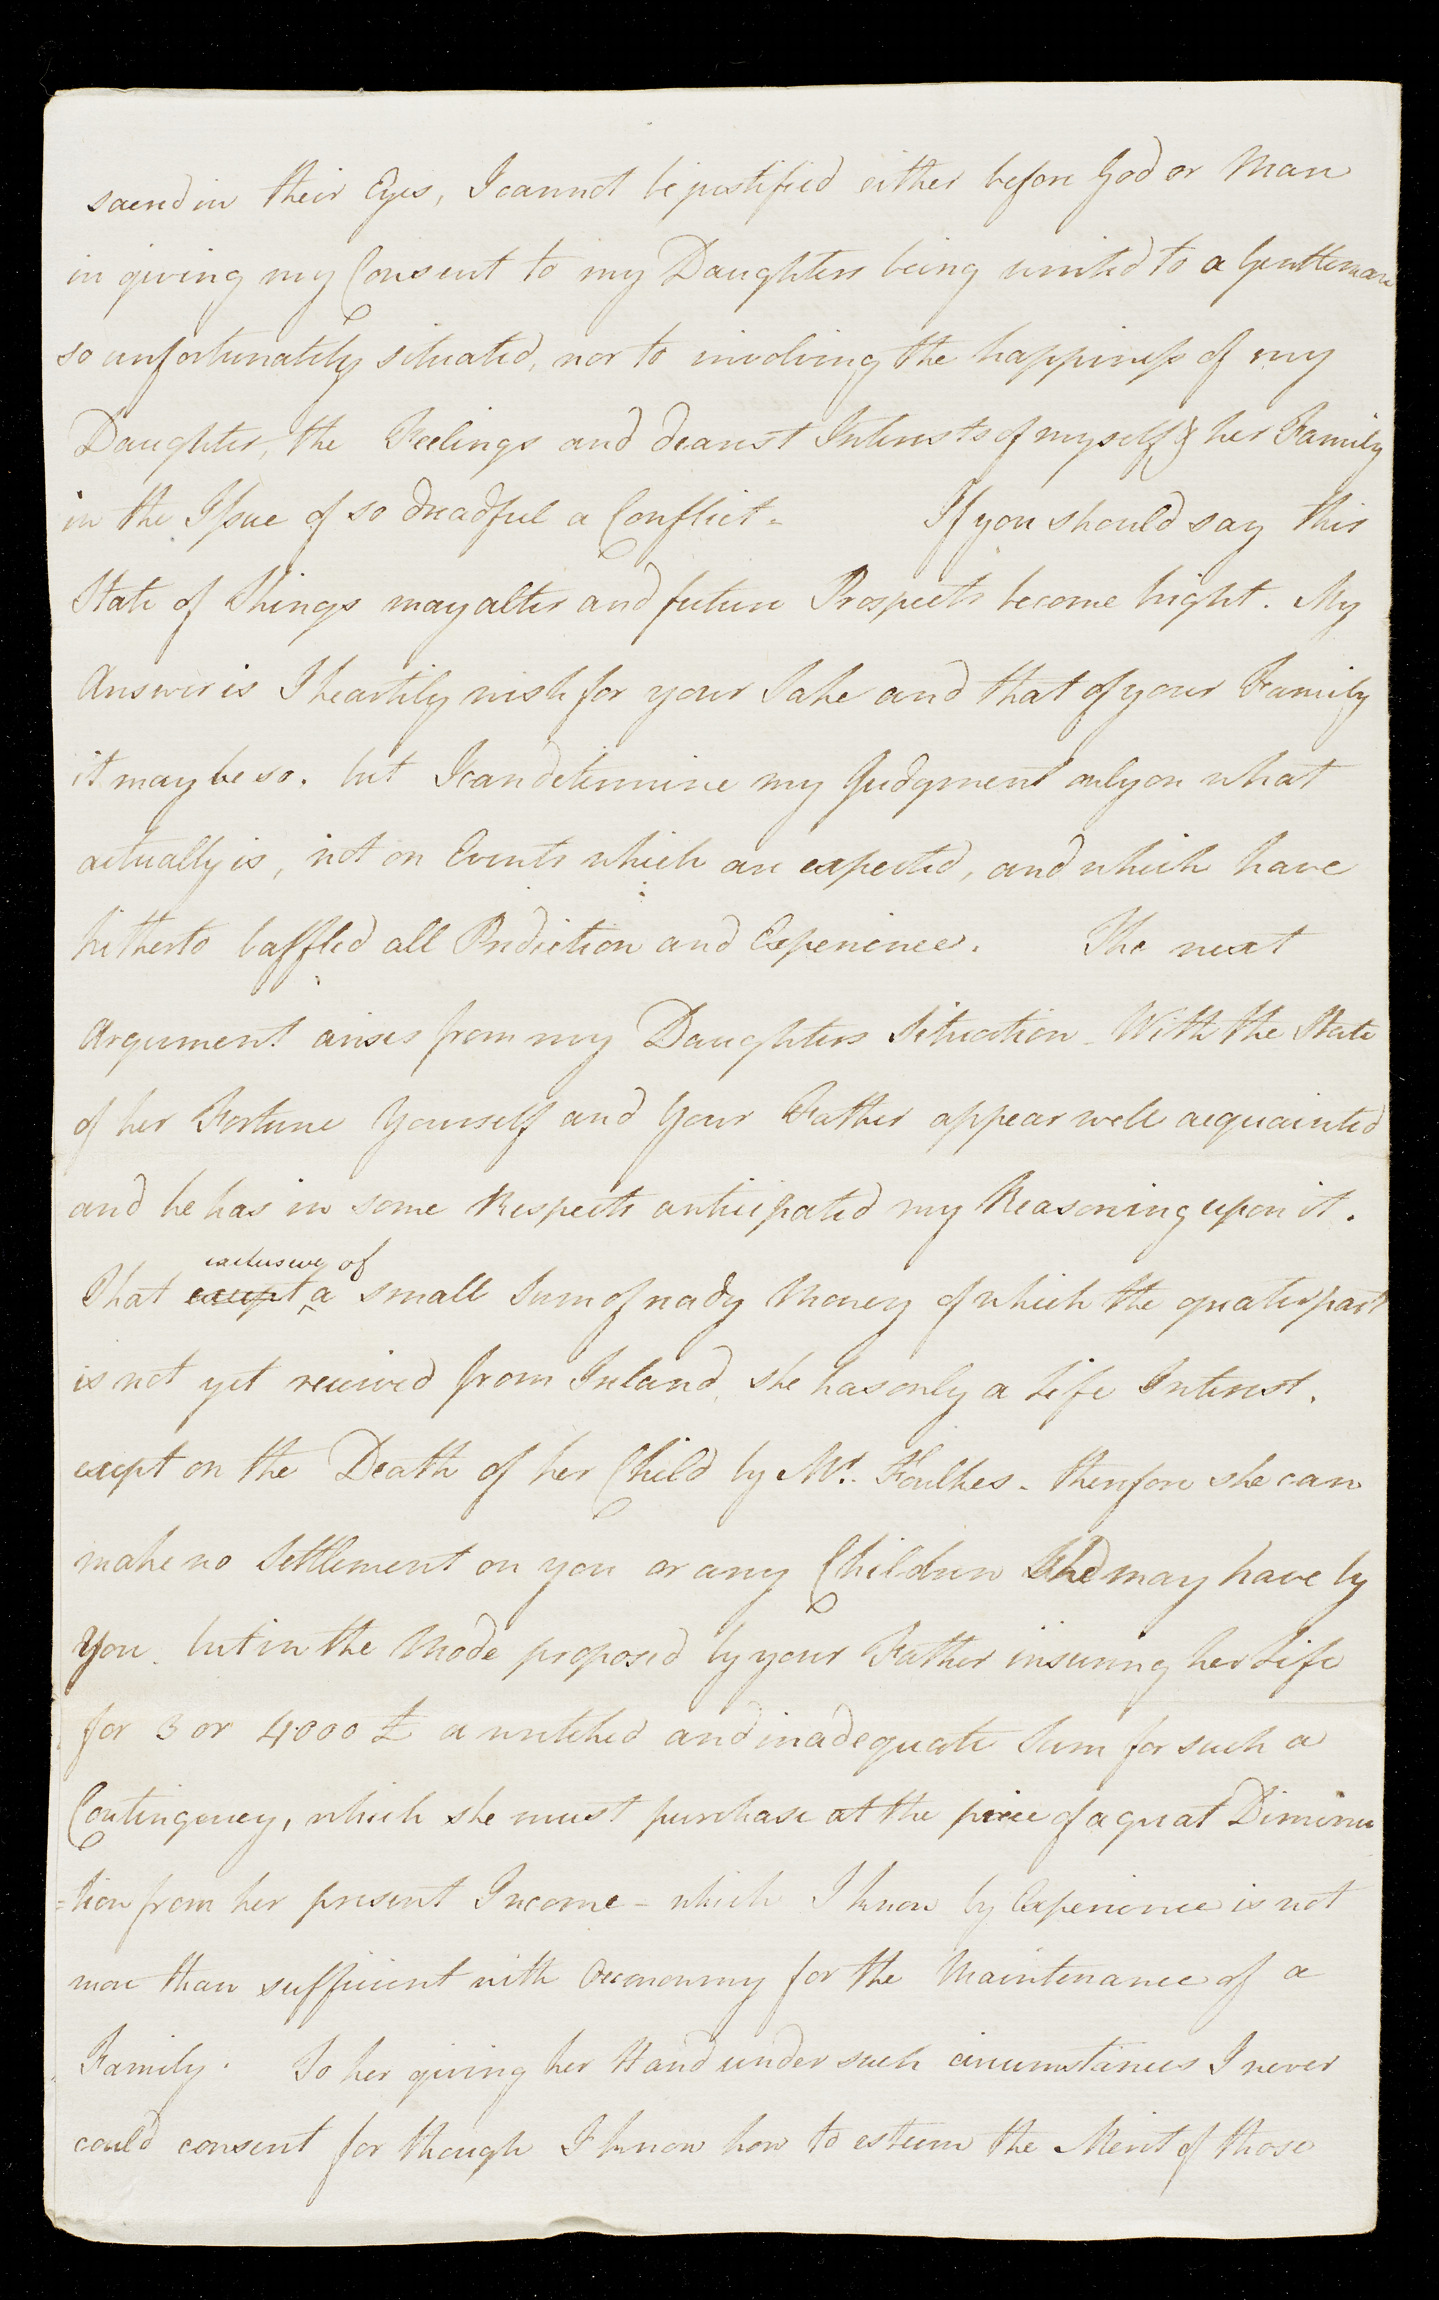 sacred in their Eyes, I cannot be justified either before God or Man
in giving my Consent to my Daughters being united to a Gentleman
so unfortunately situated, nor to involving the happiness of my
Daughter, the Feelings and dearest Interests of myself & her Family
in the Issue of so dreadful a Conflict - If you should say this
State of Things may alter and future Prospects become bright. My
Answer is I heartily wish for your Sake and that of your Family
it may be so. but I can determine my Judgment only on what
actually is, not on Events which are expected, and which have
hitherto baffled all Prediction and Experience. The next
Argument arises from my Daughters Situation - With the State
of her Fortune Yourself and Your Father appear well acquainted
and he has in some Respects anticipated my Reasoning upon it.
exclusive of
That except a small Sum of ready Money of which the greater part
is not yet received from Ireland, she has only a Life Interest.
except on the Death of her Child by Mr. Foulkes - therefore she can
make no Settlement on you or any Children She may have by
You. but in the Mode proposed by your Father insuring her Life
for 3 or 4000 £ a wretched and inadequate Sum for such a
Contingency, which she must purchase at the price of a great Diminu
=tion from her present Income - which I know by Experience is not
more than sufficient with Oeconomy for the Maintenance of a
Family. To her giving her Hand under such circumstances I never
could consent for though I know how to esteem the Merit of those